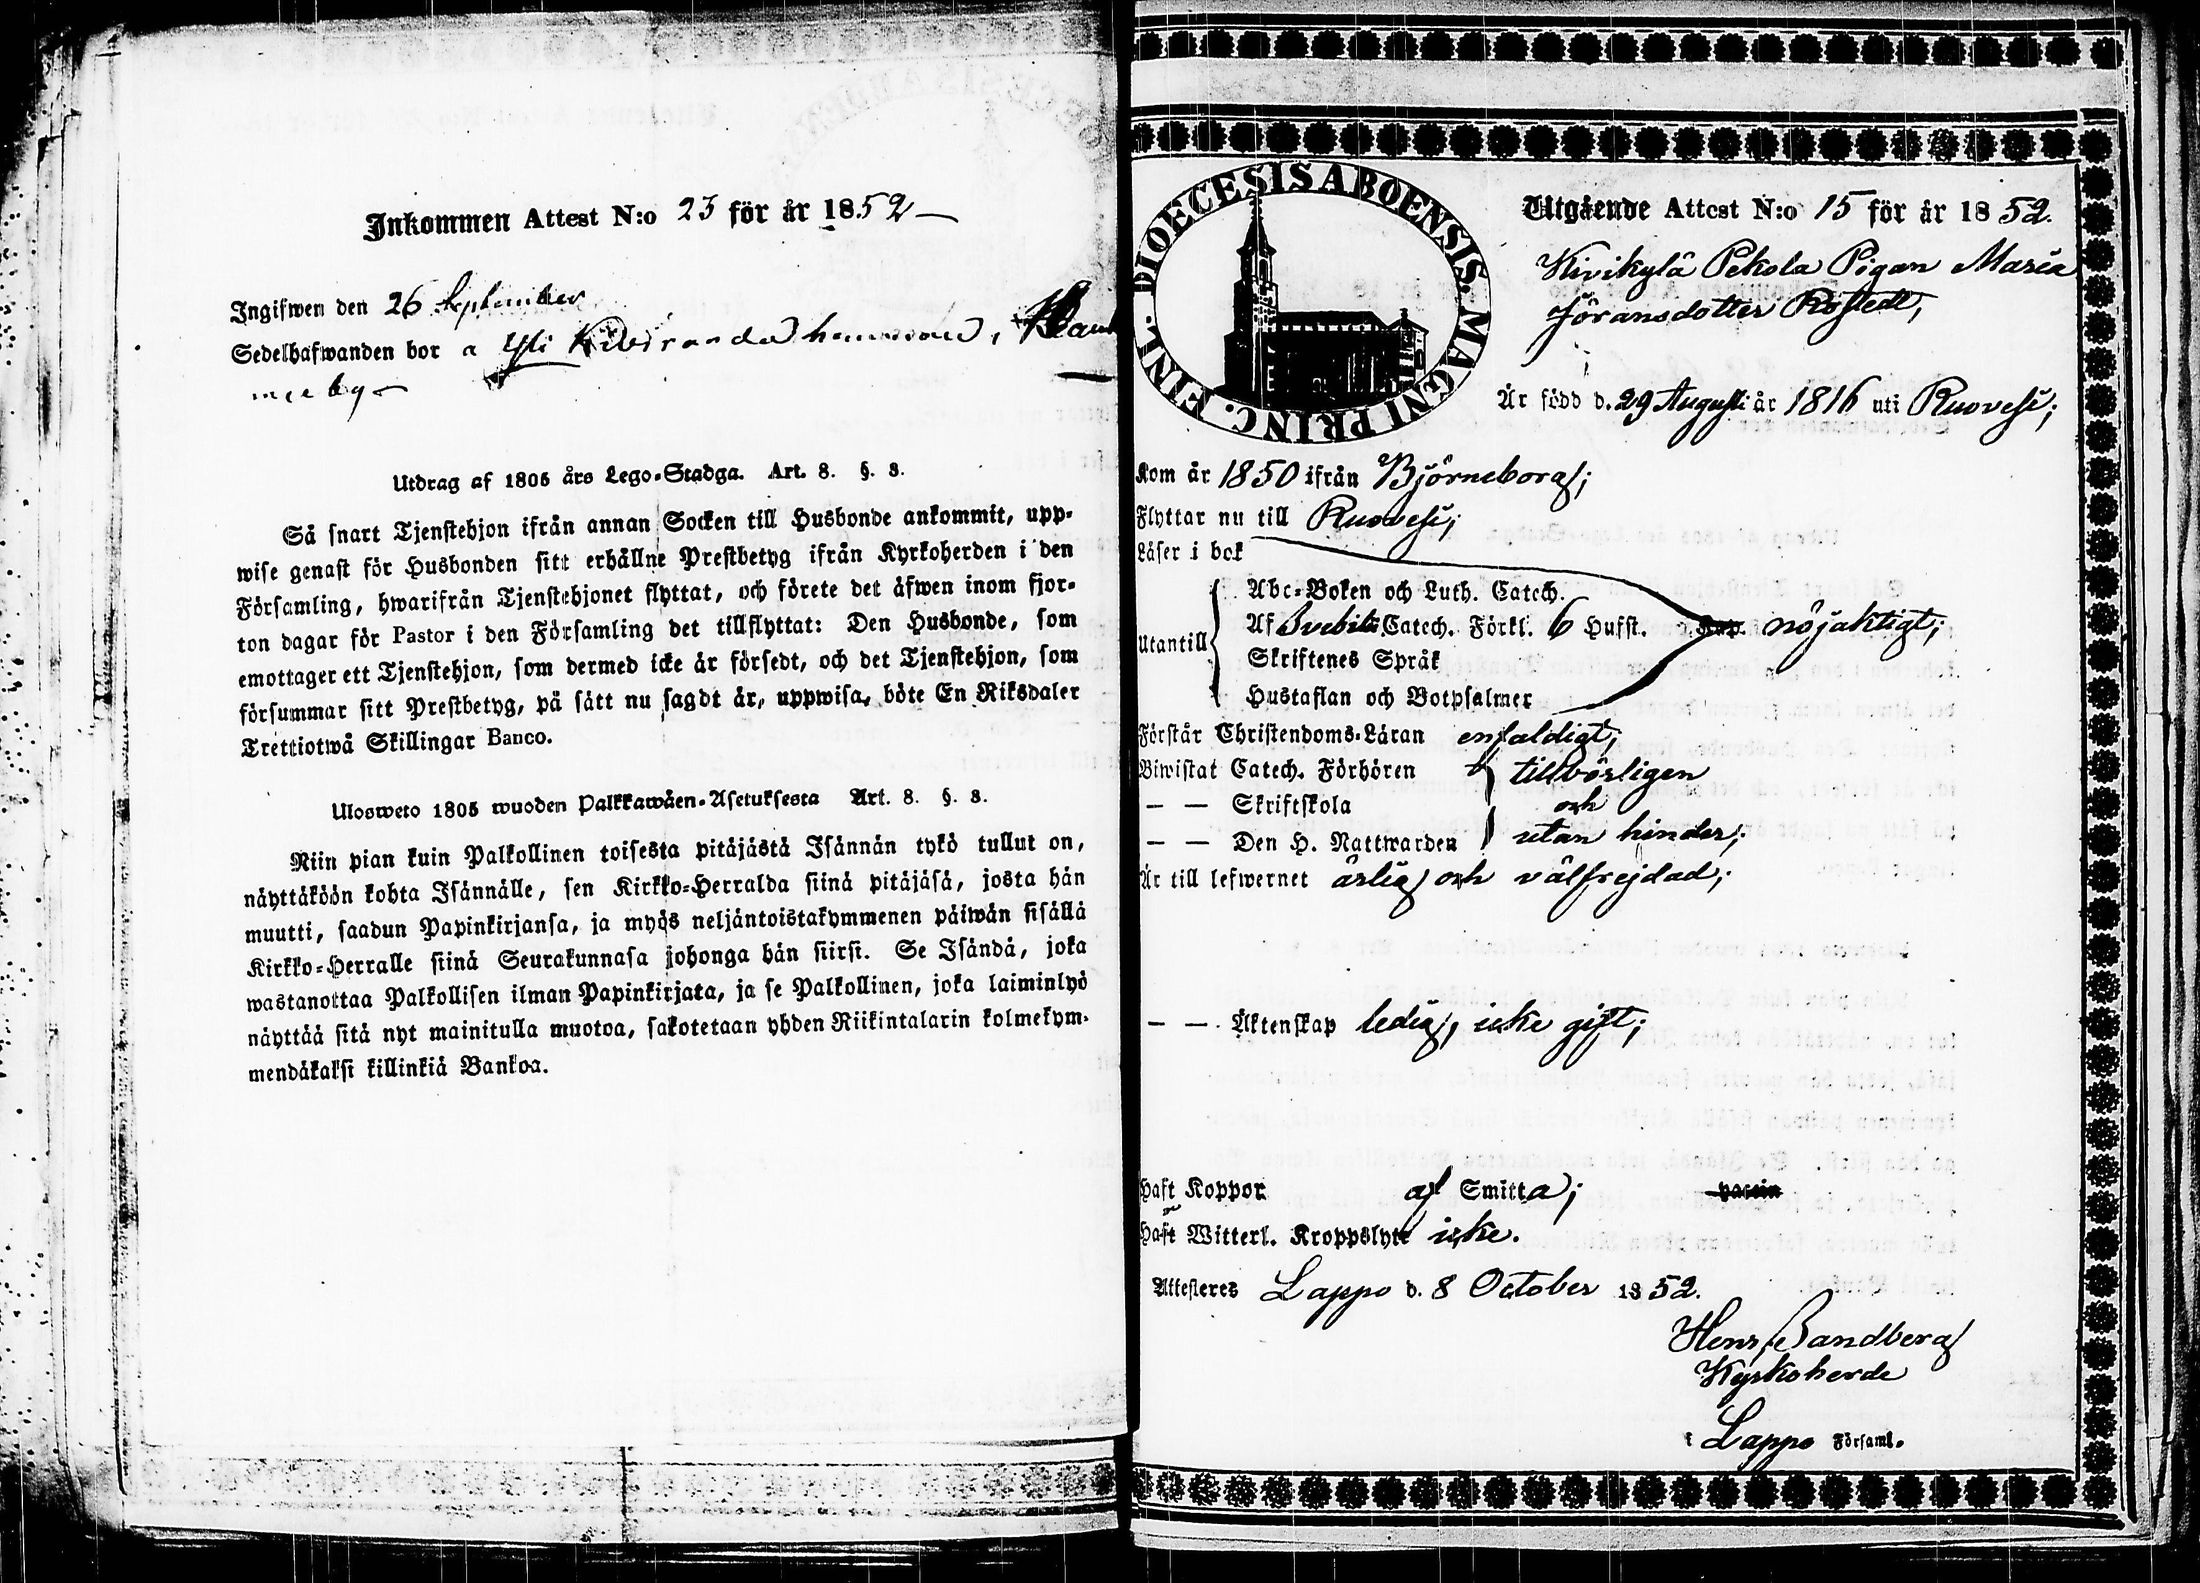 Inkommen Attest N:o 23 för år 1852
Ingifwen den 26 September
Sedelhafwanden bor a Yli hemman i
Utdrag af 1805 års Lego-Stadga. Art. 8. §. 8.
Så snart Tjenstehjon ifrån annan Socken till Husbonde ankommit, upp-
wise genast för Husbonden sitt erhållne Prestbetyg ifrån Kyrkoherden i den
Församling, hwarifrån Tjenstehjonet flyttat, och förete det äfwen inom fjor-
ton dagar för Pastor i den Församling det tillflyttat: Den Husbonde, som
emottager ett Tjenstehjon, som dermed icke är försedt, och det Tjenstehjon, som
försummar sitt Prestbetyg, på sätt nu sagdt är, uppwisa, böte En Riksdaler
Trettiotwå Skillingar Banco.
Ulosweto 1805 wuoden Palkkawäen-Asetuksesta Art. 8. §. 8.
Niin pian kuin Palkollinen toisesta pitäjästä Isännän tykö tullut on,
näyttäköön kohta Isännälle, sen Kirkko-Herralda siinä pitäjäsä, josta hän
muutti, saadun Papinkirjansa, ja myös neljäntoistakymmenen päiwän sisällä
Kirkko-Herralle siinä Seurakunnasa johonga hän siirsi. Se Isändä, joka
wastanottaa Palkollisen ilman Papinkirjata, ja se Palkollinen, joka laiminlyö
näyttää sitä nyt mainitulla muotoa, sakotetaan yhden Riikintalarin kolmekym-
mendäkaksi killinkiä Bankoa.
DIOECESIS ABOENSIS. MAGNI PRINC. FINL.
Utgående Attest N:o 15 för år 1852.
Kivikylä Pekola Pigan Maria
Jöransdotter Rostedt,
Är född d. 29 Augusti år 1816 uti Ruovesi;
Kom år 1850 ifrån Björneborg;
Flyttar nu till Ruovesi;
Läser i bok
Abc-Boken och Luth. Catech.
Utantill Af Svebili Catech. Förkl. 6 Hufst. nöjaktigt;
Skriftenes Språk
Hustaflan och Botpsalmer
Förstår Christendoms-Läran enfaldigt;
Biwistat Catech. Förhören tillbörligen
— — Skriftskola och
— — Den H. Nattwarden utan hinder;
Är till lefwernet ärlig och välfrejdad;
— — Äktenskap ledig, icke gift;
Haft Koppor af Smitta;
Haft Witterl. Kroppslyte icke.
Attesteres Lappo d. 8 October 1852.
Henr. Sandberg
Kyrkoherde
i Lappo Församl.